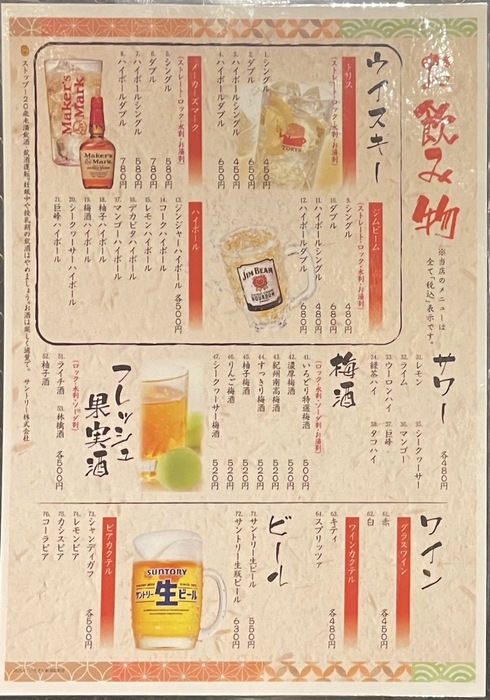 お飲み物
※当店のメニューは
全て「税込」表示です。
ウイスキー
トリス
(ストレート・ロック・水割・お湯割)
1. シングル 450円
2. ダブル 650円
3. ハイボールシングル 450円
4. ハイボールダブル 650円
TORYS
メーカーズマーク
(ストレート・ロック・水割・お湯割)
5. シングル 580円
6. ダブル 780円
7. ハイボールシングル 580円
8. ハイボールダブル 780円
Maker's Mark
Maker's Mark
ジムビーム
(ストレート・ロック・水割・お湯割)
9. シングル 480円
10. ダブル 680円
11. ハイボールシングル 480円
12. ハイボールダブル 680円
JIM BEAM
BOURBON
ハイボール
13. ジンジャーハイボール 各500円
14. コークハイボール
15. レモンハイボール
16. デカビタハイボール
17. マンゴーハイボール
18. 柚子ハイボール
19. 梅酒ハイボール
20. シークヮーサーハイボール
21. 巨峰ハイボール
サワー
31. レモン
32. ライム
33. ウーロンハイ
34. 緑茶ハイ
35. シークヮーサー 各480円
36. マンゴー
37. 巨峰
38. タコハイ
梅酒
(ロック・水割・ソーダ割・お湯割)
41. いろどり特選梅酒 500円
42. 濃厚梅酒 520円
43. 紀州南高梅酒 520円
44. すっきり梅酒 520円
45. 柚子梅酒 520円
46. りんご梅酒 520円
47. シークヮーサー梅酒 520円
フレッシュ
果実酒
(ロック・水割・ソーダ割)
51. ライチ酒
52. 柚子酒
53. 林檎酒 各500円
ワイン
グラスワイン
61. 赤
62. 白 各450円
ワインカクテル
63. キティ
64. スプリッツァ 各480円
ビール
71. サントリー生ビール 550円
72. サントリー生瓶ビール 630円
SUNTORY
サントリー
生
ビール
ビアカクテル
73. シャンディガフ 各500円
74. レモンビア
75. カシスビア
76. コーラビア
ストップ!20歳未満飲酒・飲酒運転。妊娠中や授乳期の飲酒はやめましょう。お酒は楽しく適量で。 サントリー株式会社